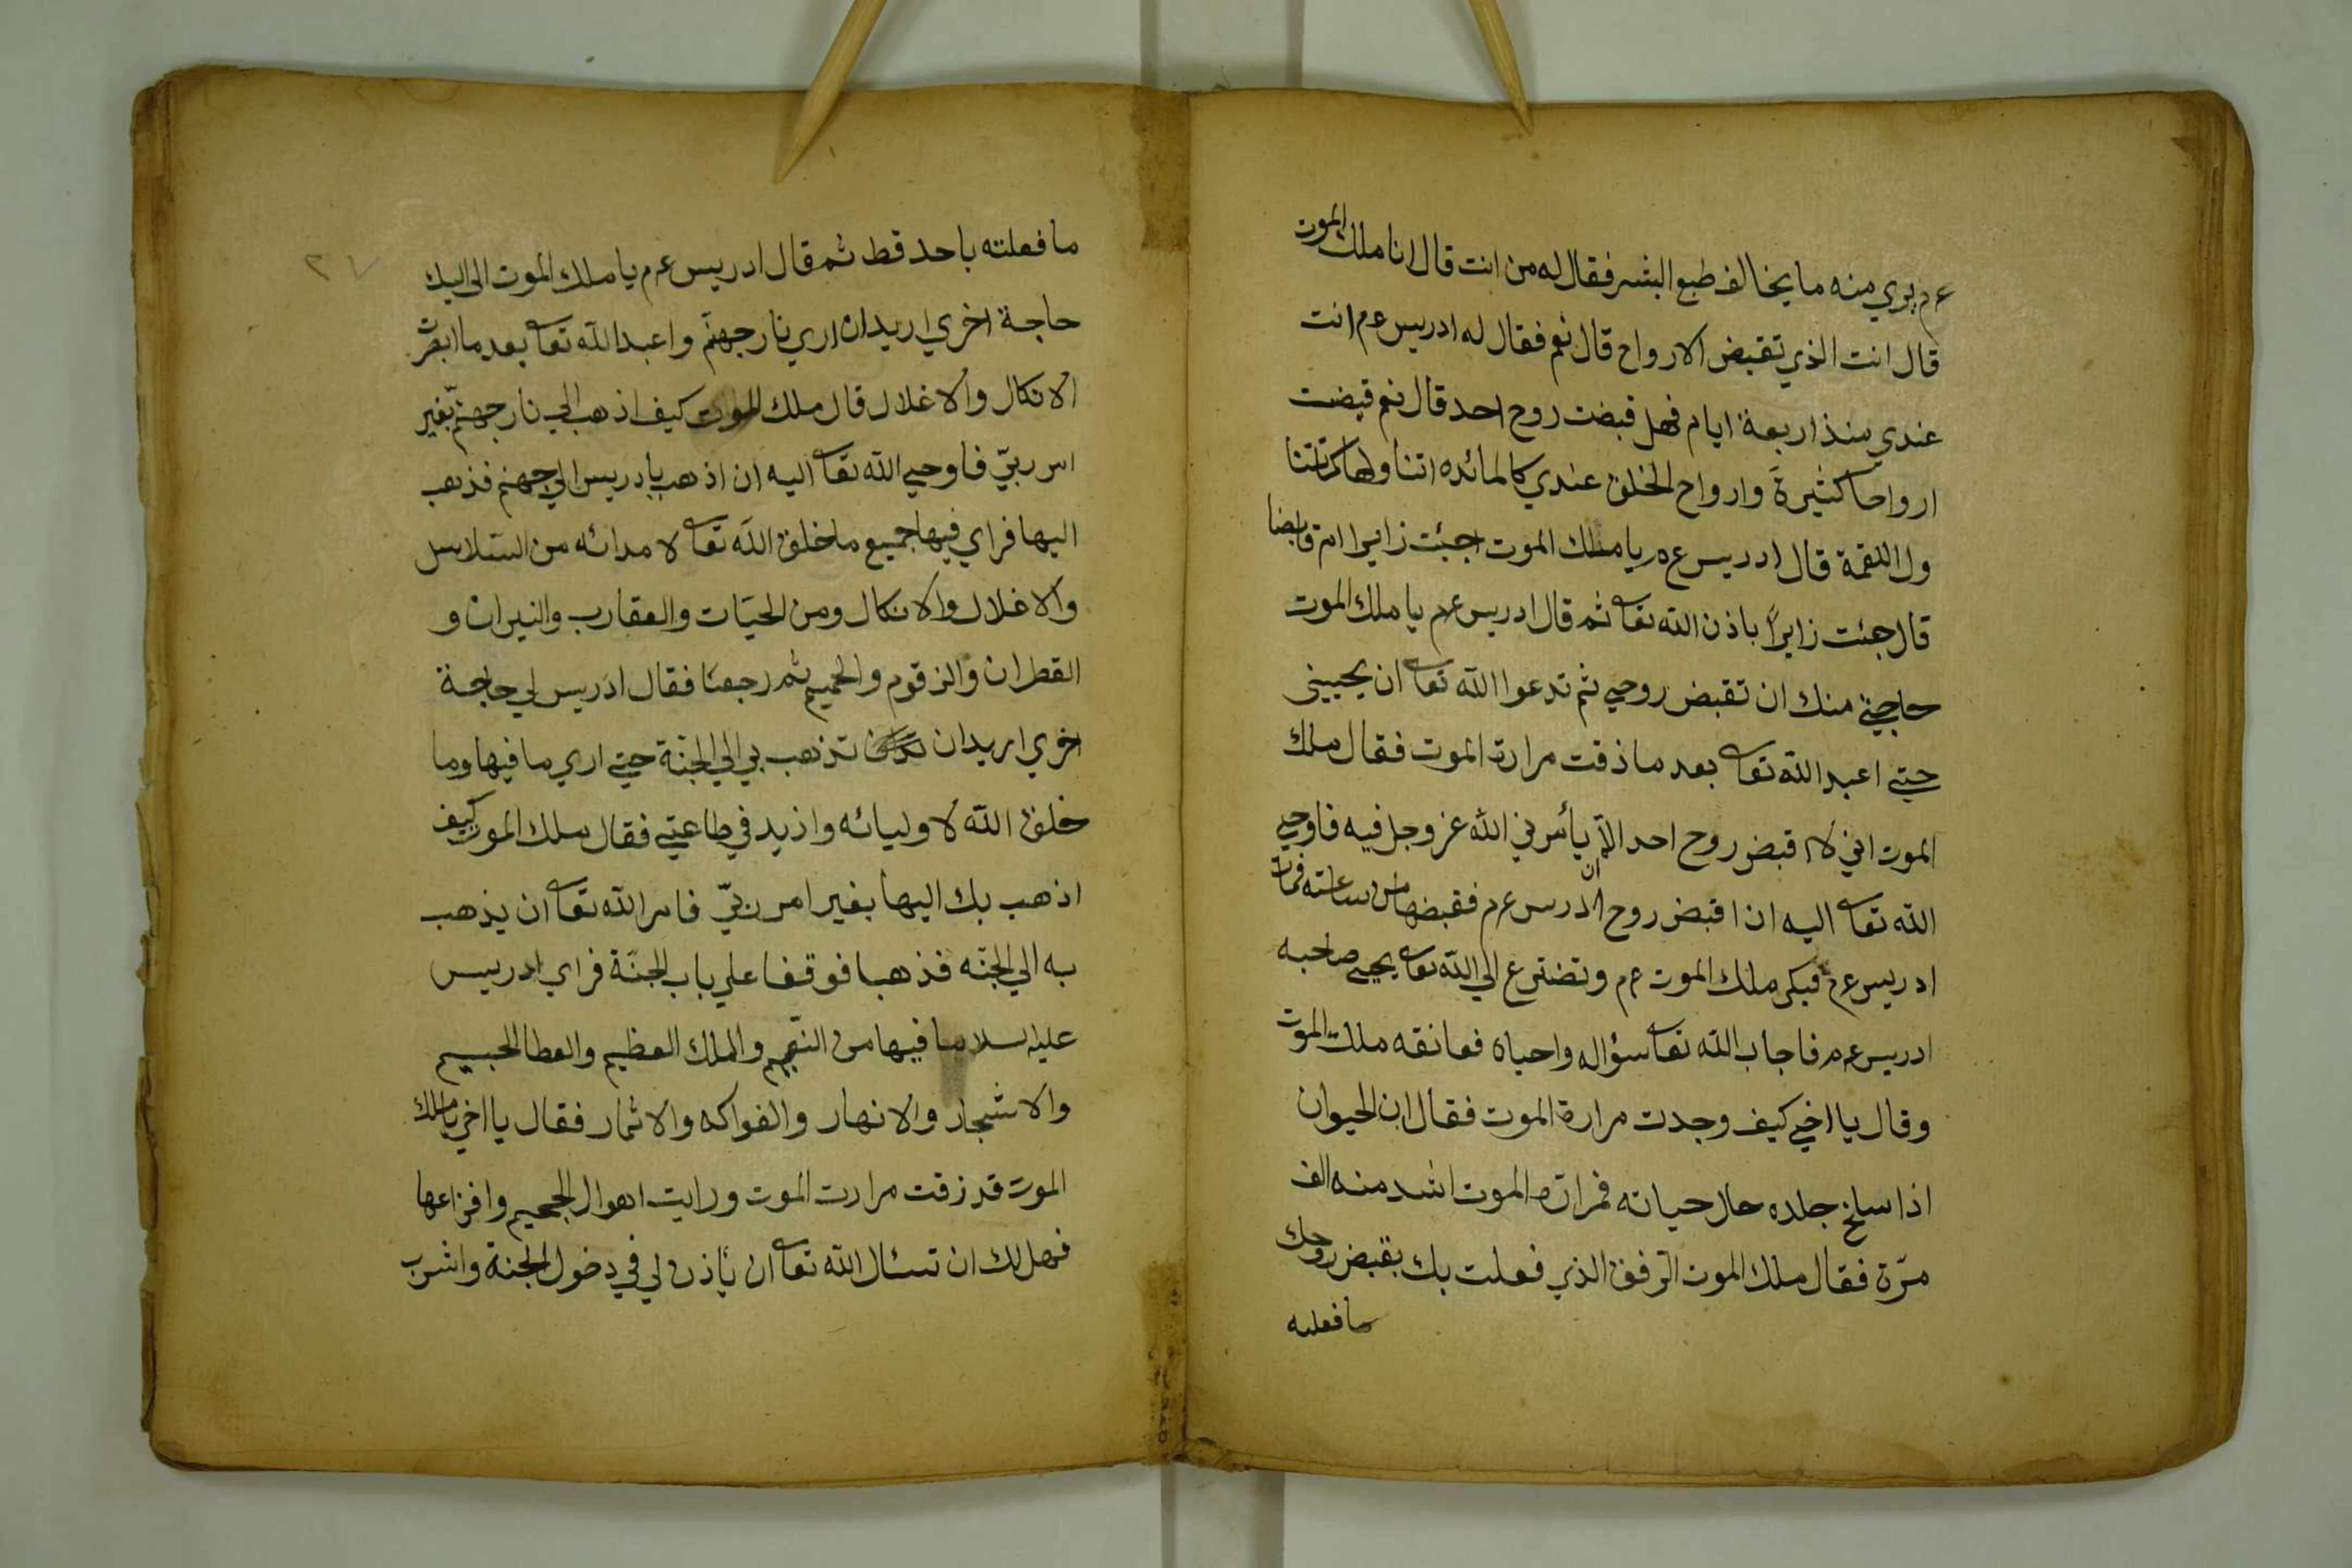 ع م يري منه ما يخالف طبع البشر فقال له من انت قال انا ملك الموت
قال انت الذي تقبض الارواح قال نعم فقال له ادريس ع م انت
عندي منذ اربعة ايام فهل قبضت روح احد قال نعم قبضت
ارواحا كثيرة وارواح الخلق عندي كالمائده اتناولها كما تتنا
ول اللقمة قال ادريس ع م يا ملك الموت اجئت زايرا ام قابضا
قال جئت زايراً باذن الله تعا ثم قال ادريس ع م يا ملك الموت
حاجتي منك ان تقبض روحي ثم تدعوا الله تعا ان يحييني
حتي اعبد الله تعا بعد ما ذقت مرارة الموت فقال ملك
الموت اني لا اقبض روح احد الا ان يأمرني الله عز وجل فيه فاوحي
الله تعا اليه ان اقبض روح ادرس ع م فقبضها من ساعته فمات
ادريس ع م فبكي ملك الموت ع م وتضرع الي الله تعا يحيي صاحبه
ادريس ع م فاجاب الله تعا سؤاله واحياه فعانقه ملك الموت
وقال يا اخي كيف وجدت مرارة الموت فقال ان الحيوان
اذا سلخ جلده حال حياته فمرارة الموت اشد منه الف
مرّة فقال ملك الموت الرفق الذي فعلت بك بقبض روحك
ما فعلته
٢٧
ما فعلته باحد قط ثم قال ادريس ع م يا ملك الموت الى اليك
حاجة اخري اريد ان اري نار جهنم واعبد الله تعا بعد ما ابصرت
الانكال والاغلال قال ملك الموت كيف اذهب الي نار جهنم بغير
امر ربيّ فاوحي الله تعا اليه ان اذهب بادريس الي جهنم فذهب
اليها فراي فيها جميع ما خلق الله تعا لامدائه من السلاسل
والاغلال والانكال ومن الحيّات والعقارب والنيران و
القطران والزقوم والحميم ثم رجعنا فقال ادريس لي حاجة
اخري اريد ان تذهب بي الي الجنّة حتي اري ما فيها وما
خلق الله لاوليائه وازيد في طاعتي فقال ملك الموت كيف
اذهب بك اليها بغير امر ربيّ فامر الله تعا ان يذهب
به الي الجنّه فذهبا فوقفا علي باب الجنّة فراي ادريس
عليه سلام ما فيها من النّعيم والملك العظيم والعطا الجسيم
والاشجار والانهار والفواكه والاثمار فقال يا اخي يا ملك
الموت قد زقت مرارت الموت ورايت اهوال الجحيم وافزاعها
فهل لك ان تسئال الله تعا ان يأذن لي في دخول الجنة واشرب